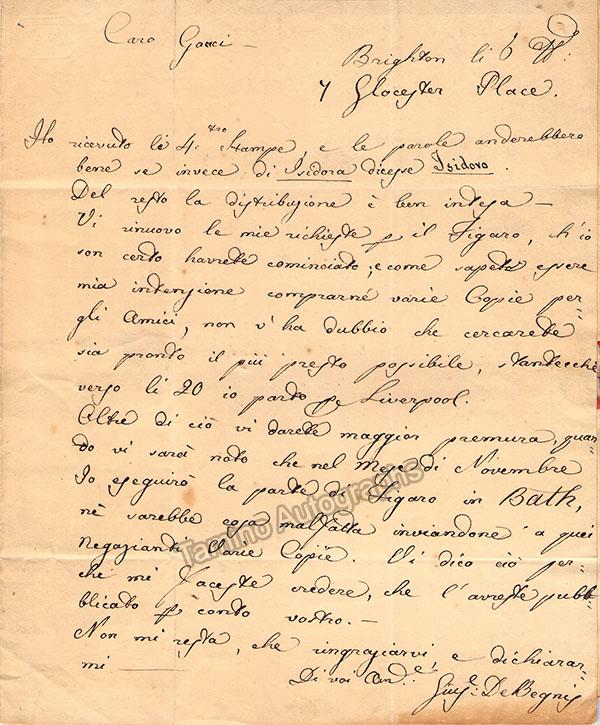 Caro Gacci —
Brighton li 6
7 Glocester Place.
Ho ricevuto li 4:tro Stampe, e le parole anderebbero
bene se invece di Isidora dicesse Isidoro.
Del resto la distribuzione è ben intesa —
Vi rinuovo le mie richieste p il Figaro, ch'io
son certo havrette cominciato; e come sapete essere
mia intenzione comprarne varie Copie per-
gli Amici, non v'ha dubbio che cercarette
sia pronto il più presto possibile, stantecchè
verso li 20 io parto pe Liverpool.
Oltre di ciò vi darette maggior premura, quan-
do vi sarà noto che nel Mese di Novembre
Io eseguirò la parte di Figaro in Bath,
nè sarebbe cosa mal fatta inviandone a quei
Negozianti Varie Copie. Vi dico ciò per-
che mi faceste credere, che l'avreste pubb-
blicato p conto vostro. —
Non mi resta, che ringraziarvi, e dichiarar-
mi —
Di voi
Giuse. De Begnis
Tamino Autographs